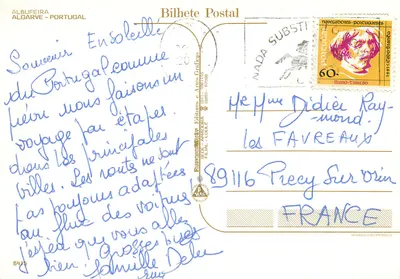 ALBUFEIRA
ALGARVE - PORTUGAL
Bilhete Postal
Souvenir Ensoleillé
du Portugal comme
prévu nous faisons un
voyage par étapes
dans les principales
villes. Les routes ne sont
pas toujours adaptées
au flux des voitures
j'espère que vous allez
bien. Grosses bises
famille
NADA SUBSTI
navegadores portugueses
PORTUGAL
60.
Mr Mme Didier Ray-
mond.
Les FAVREAUX
89116 Precy Sur Vrin
FRANCE